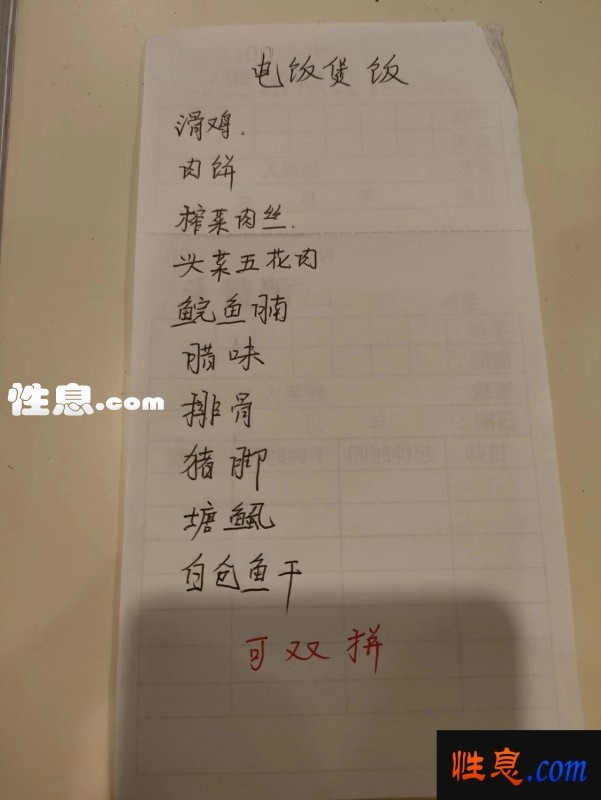 电饭煲饭
滑鸡.
肉饼
榨菜肉丝.
头菜五花肉
鲩鱼腩
腊味
性息.com
排骨
猪脚
塘鲺
白仓鱼干
可双拼
性息.com